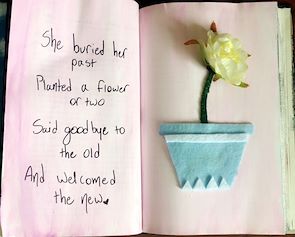 She buried her
past
Planted a flower
or two
Said goodbye to
the old
And welcomed
the new